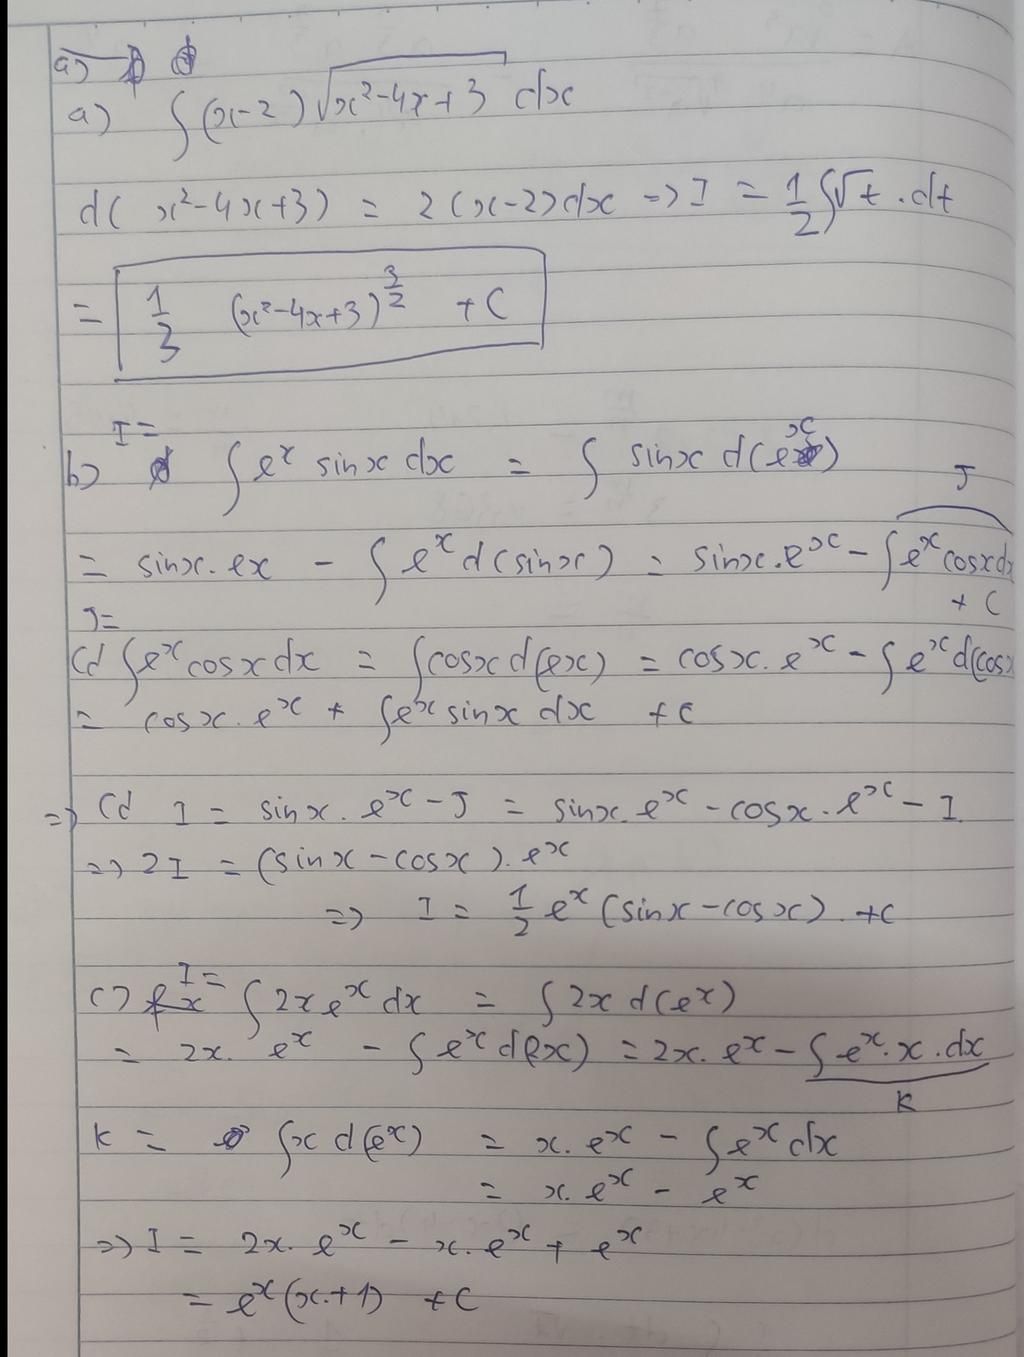 a)
a) ∫ (x-2) √(x²-4x+3) dx
d( x²-4x+3) = 2(x-2)dx => I = 1/2 ∫√t . dt
= 1/3 (x²-4x+3)^(3/2) + C
I =
b) ∫ e^x sinx dx = ∫ sinx d(e^x)
J
= sinx. ex - ∫ e^x d(sinx) = sinx. e^x - ∫ e^x cosx dx
+ C
J=
Cd ∫ e^x cosx dx = ∫ cosx d(ex) = cosx. e^x - ∫ e^x d(cosx
= cosx. e^x + ∫ e^x sinx dx + C
=> Cd I = sinx. e^x - J = sinx. e^x - cosx. e^x - I
=> 2I = (sinx - cosx). e^x
=> I = 1/2 e^x (sinx - cosx) + C
I =
c) ∫ 2x e^x dx = ∫ 2x d(e^x)
= 2x. e^x - ∫ e^x d(2x) = 2x. e^x - ∫ e^x. x. dx
K
K = ∫ x d(e^x) = x. e^x - ∫ e^x dx
= x. e^x - e^x
=> I = 2x. e^x - x. e^x + e^x
= e^x (x+1) + C